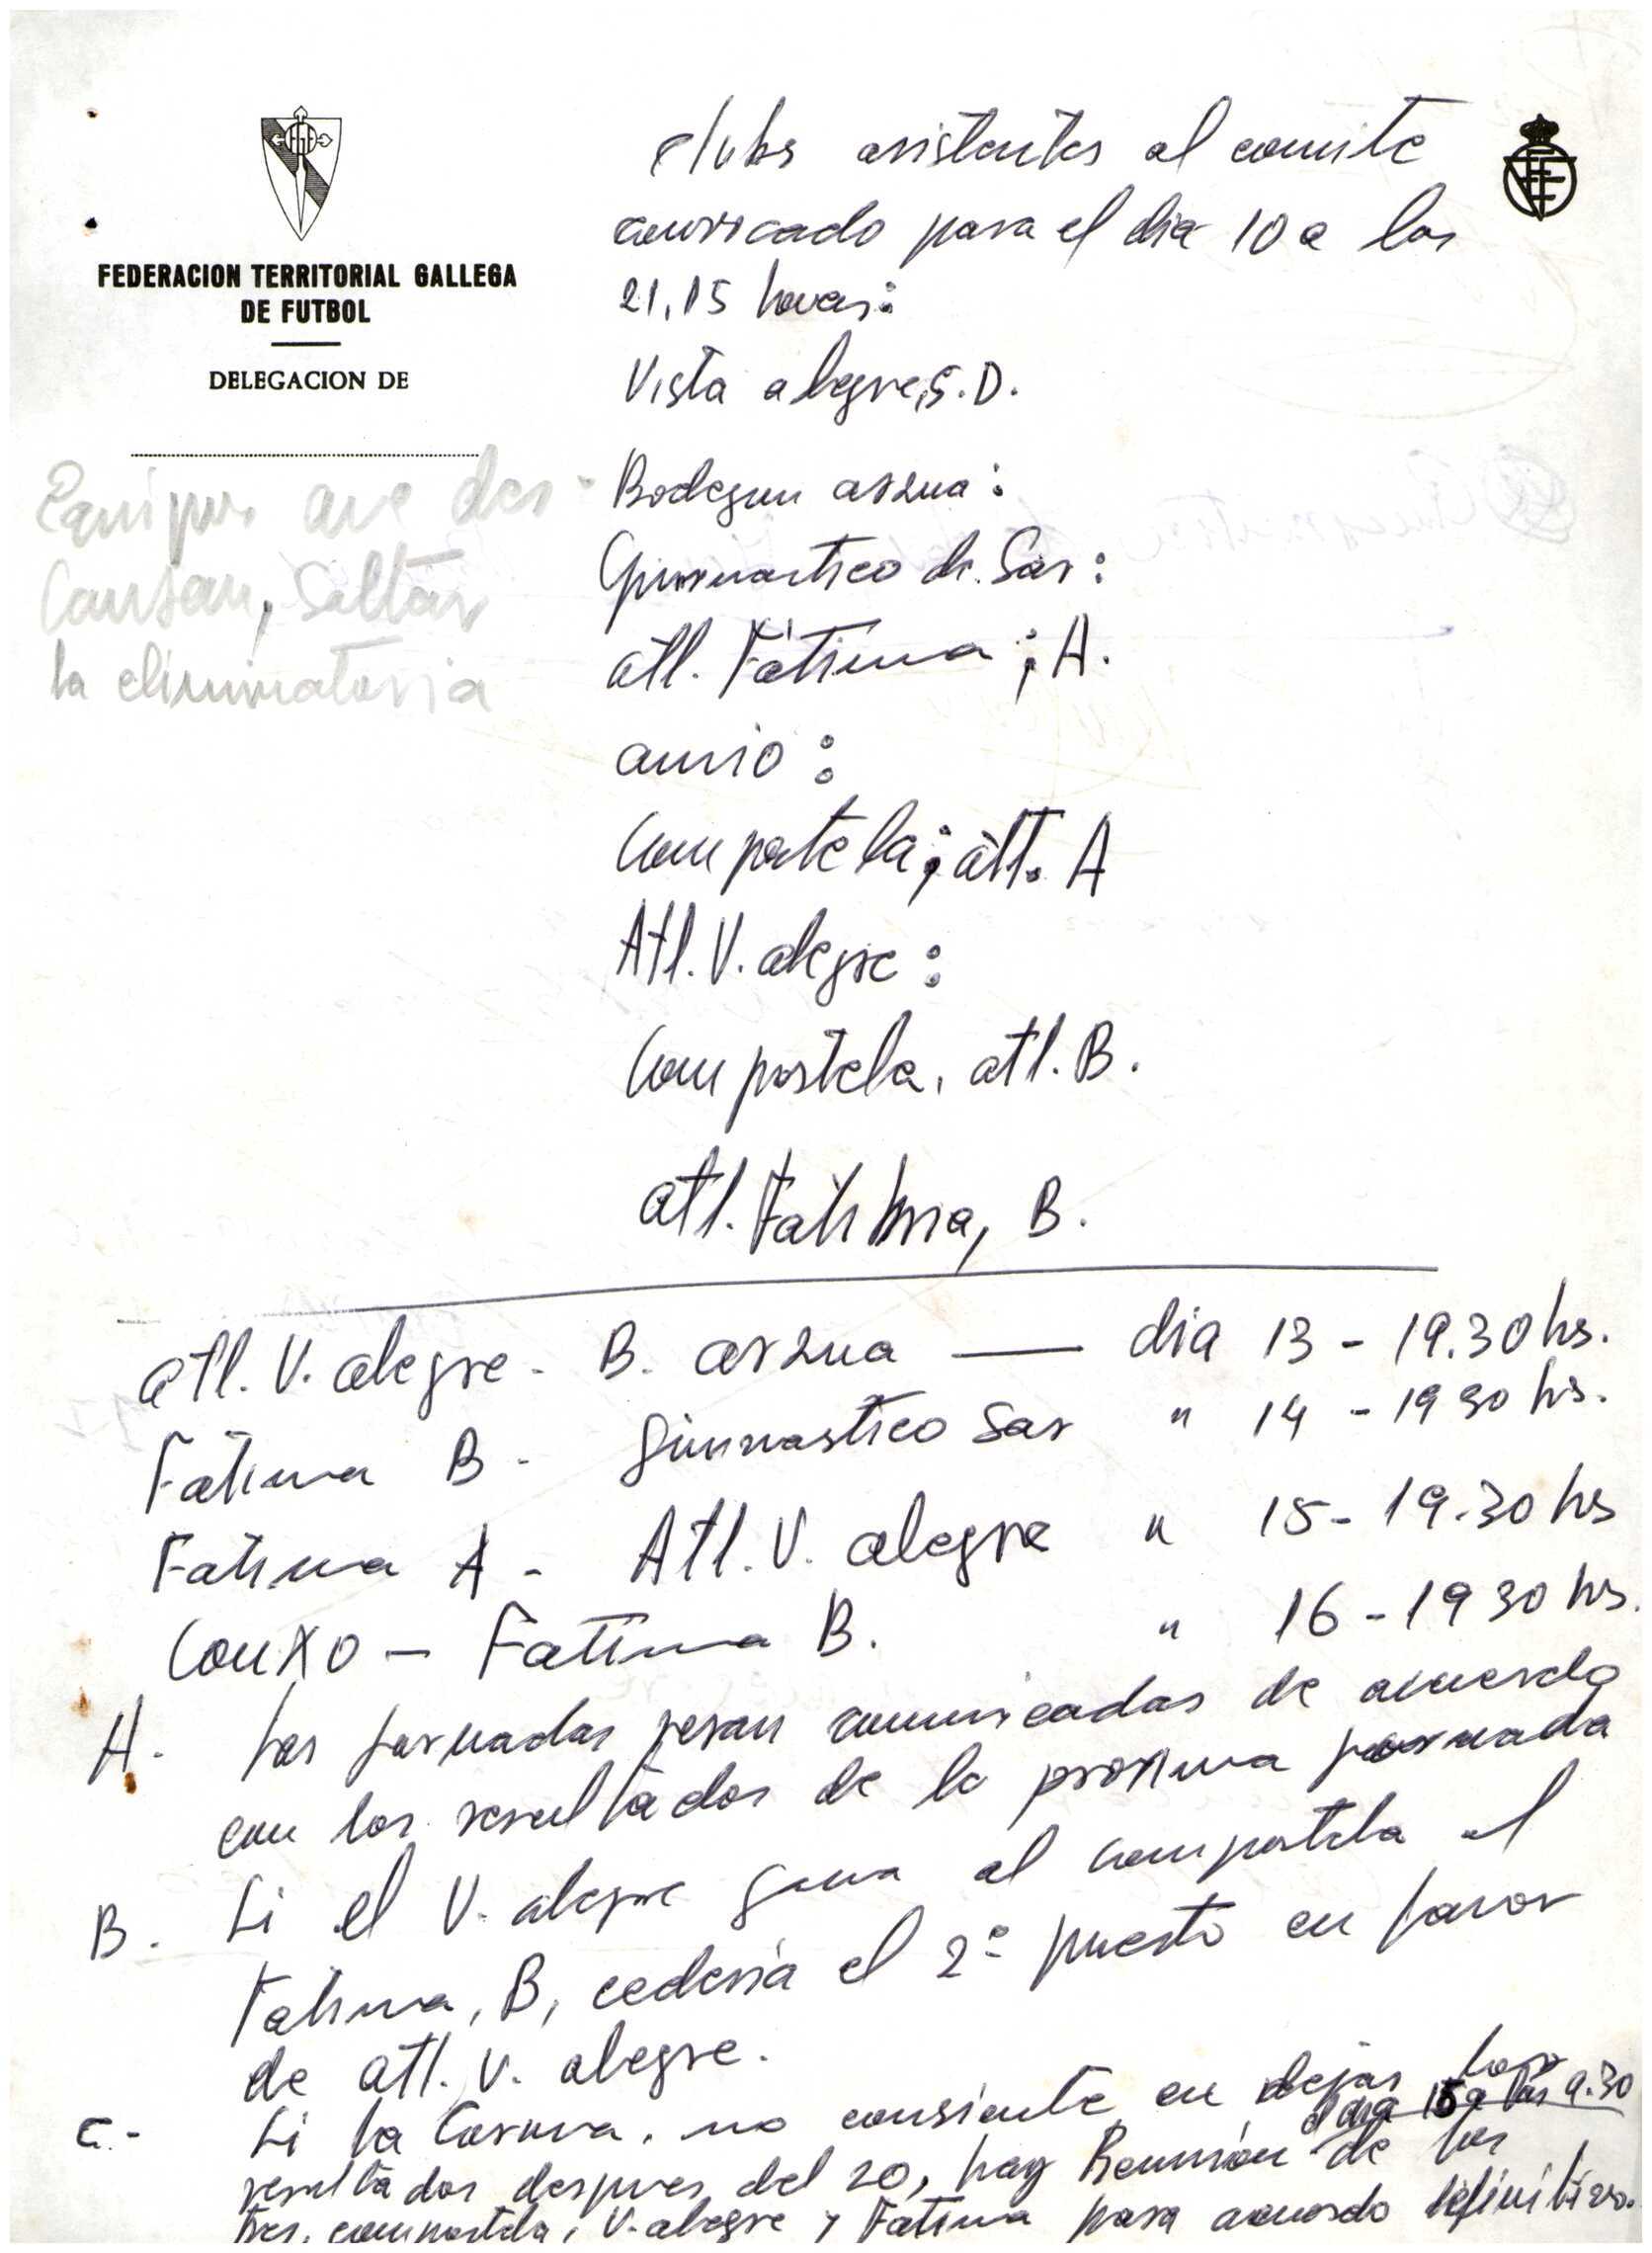 FEDERACION TERRITORIAL GALLEGA
DE FUTBOL
DELEGACION DE
Equipos que des-
cansan, saltan
la eliminatoria
clubs asistentes al comite
convocado para el dia 10 a las
21,15 horas:
Vista alegre, S.D.
Bodegun arzua:
Gimnastico de Sar:
atl. Fátima; A.
amio:
Compostela; atl. A
Atl. V. alegre:
Compostela, atl. B.
atl. Fatima, B.
atl. V. alegre - B. arzua — dia 13 - 19.30 hs.
Fátima B - gimnastico Sar " 14 - 19 30 hs.
Fatima A - Atl. V. alegre " 15 - 19.30 hs
Conxo - Fatima B. " 16 - 19 30 hs.
A. las jornadas seran comunicadas de acuerdo
con los resultados de la proxima jornada
B. Si el V. alegre gana al compostela el
Fatima, B, cederia el 2º puesto en favor
de atl. V. alegre.
C.- Si la Coruña, no consiente en dejar los
el dia 15 a las 9.30
resultados despues del 20, hay Reunión de los
tres, compostela, V. alegre y Fatima para acuerdo definitivo.